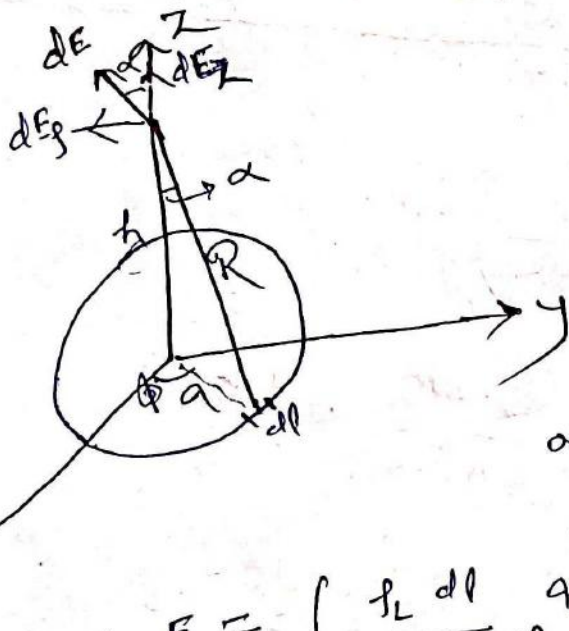 Z
dE
α
dEz
dEρ
α
h
R
y
φ
a
dl
ρL dl